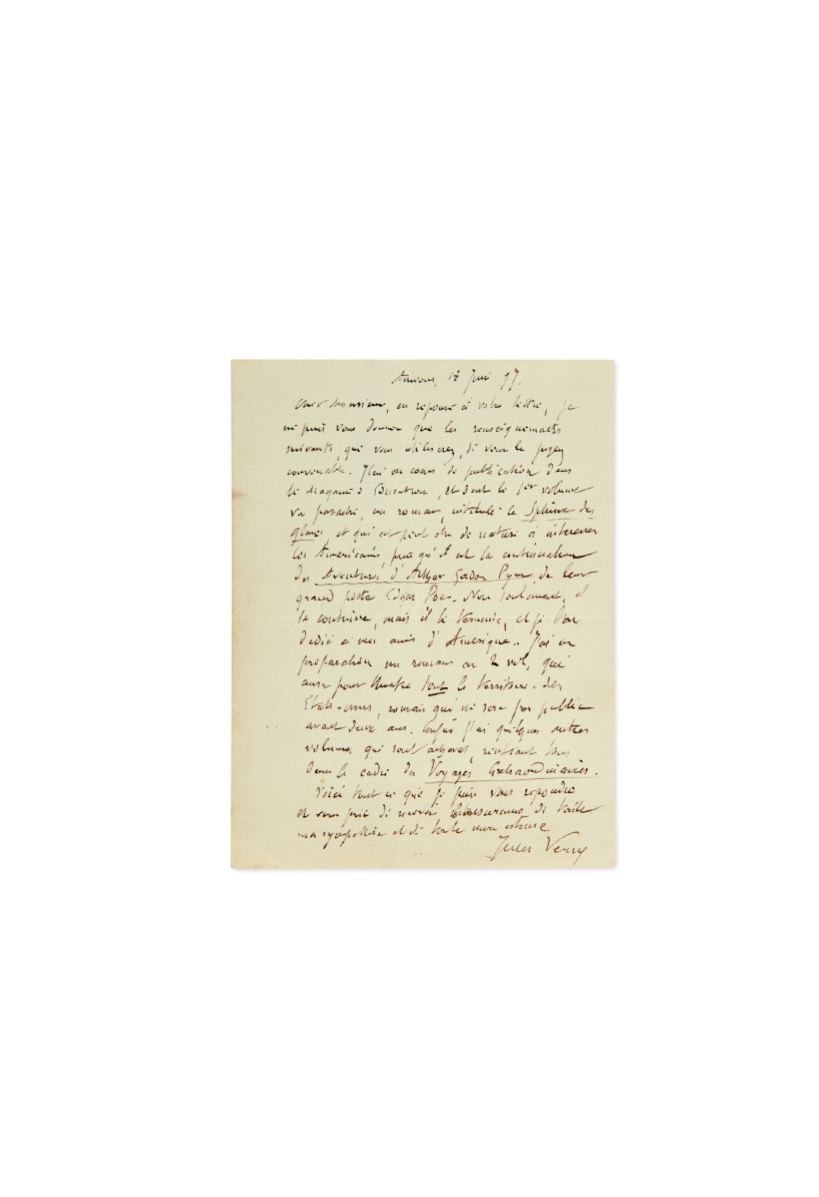 Amiens, 18 Juin 97.
Cher Monsieur, en réponse à votre lettre, je
ne puis vous donner que les renseignements
suivants, que vous utiliserez, si vous le jugez
convenable. J'ai en cours de publication dans
le Magasin d'Education, et dont le 1er volume
va paraître, un roman, intitulé le Sphinx des
glaces, et qui est peut être de nature à intéresser
les Américains, puisqu'il est la continuation
des Aventures d'Arthur Gordon Pym de leur
grand poète Edgar Poe. Non seulement, il
la continue, mais il le termine, et je l'ai
dédié à mes amis d'Amérique. J'ai en
préparation un roman en 2 vol, qui
aura pour théâtre tout le territoire des
Etats-Unis, roman qui ne sera pas publié
avant deux ans. Enfin j'ai quelques autres
volumes qui sont achevés, rentrant tous
dans le cadre des Voyages Extraordinaires.
Voici tout ce que je puis vous répondre
et vous prie de recevoir l'assurance de toute
ma sympathie et de toute mon estime
Jules Verne